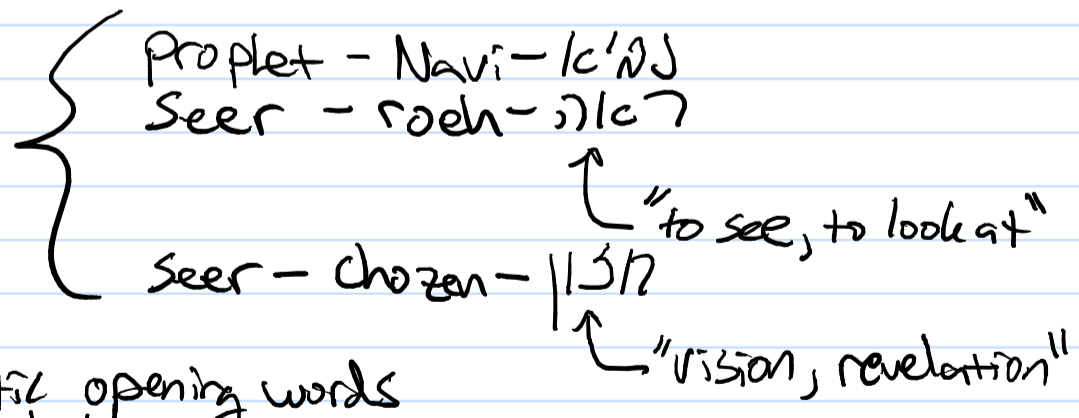 Prophet - Navi - נביא
Seer - roeh - ראה
"to see, to look at"
seer - Chozen - חזון
"vision, revelation"
tic opening words